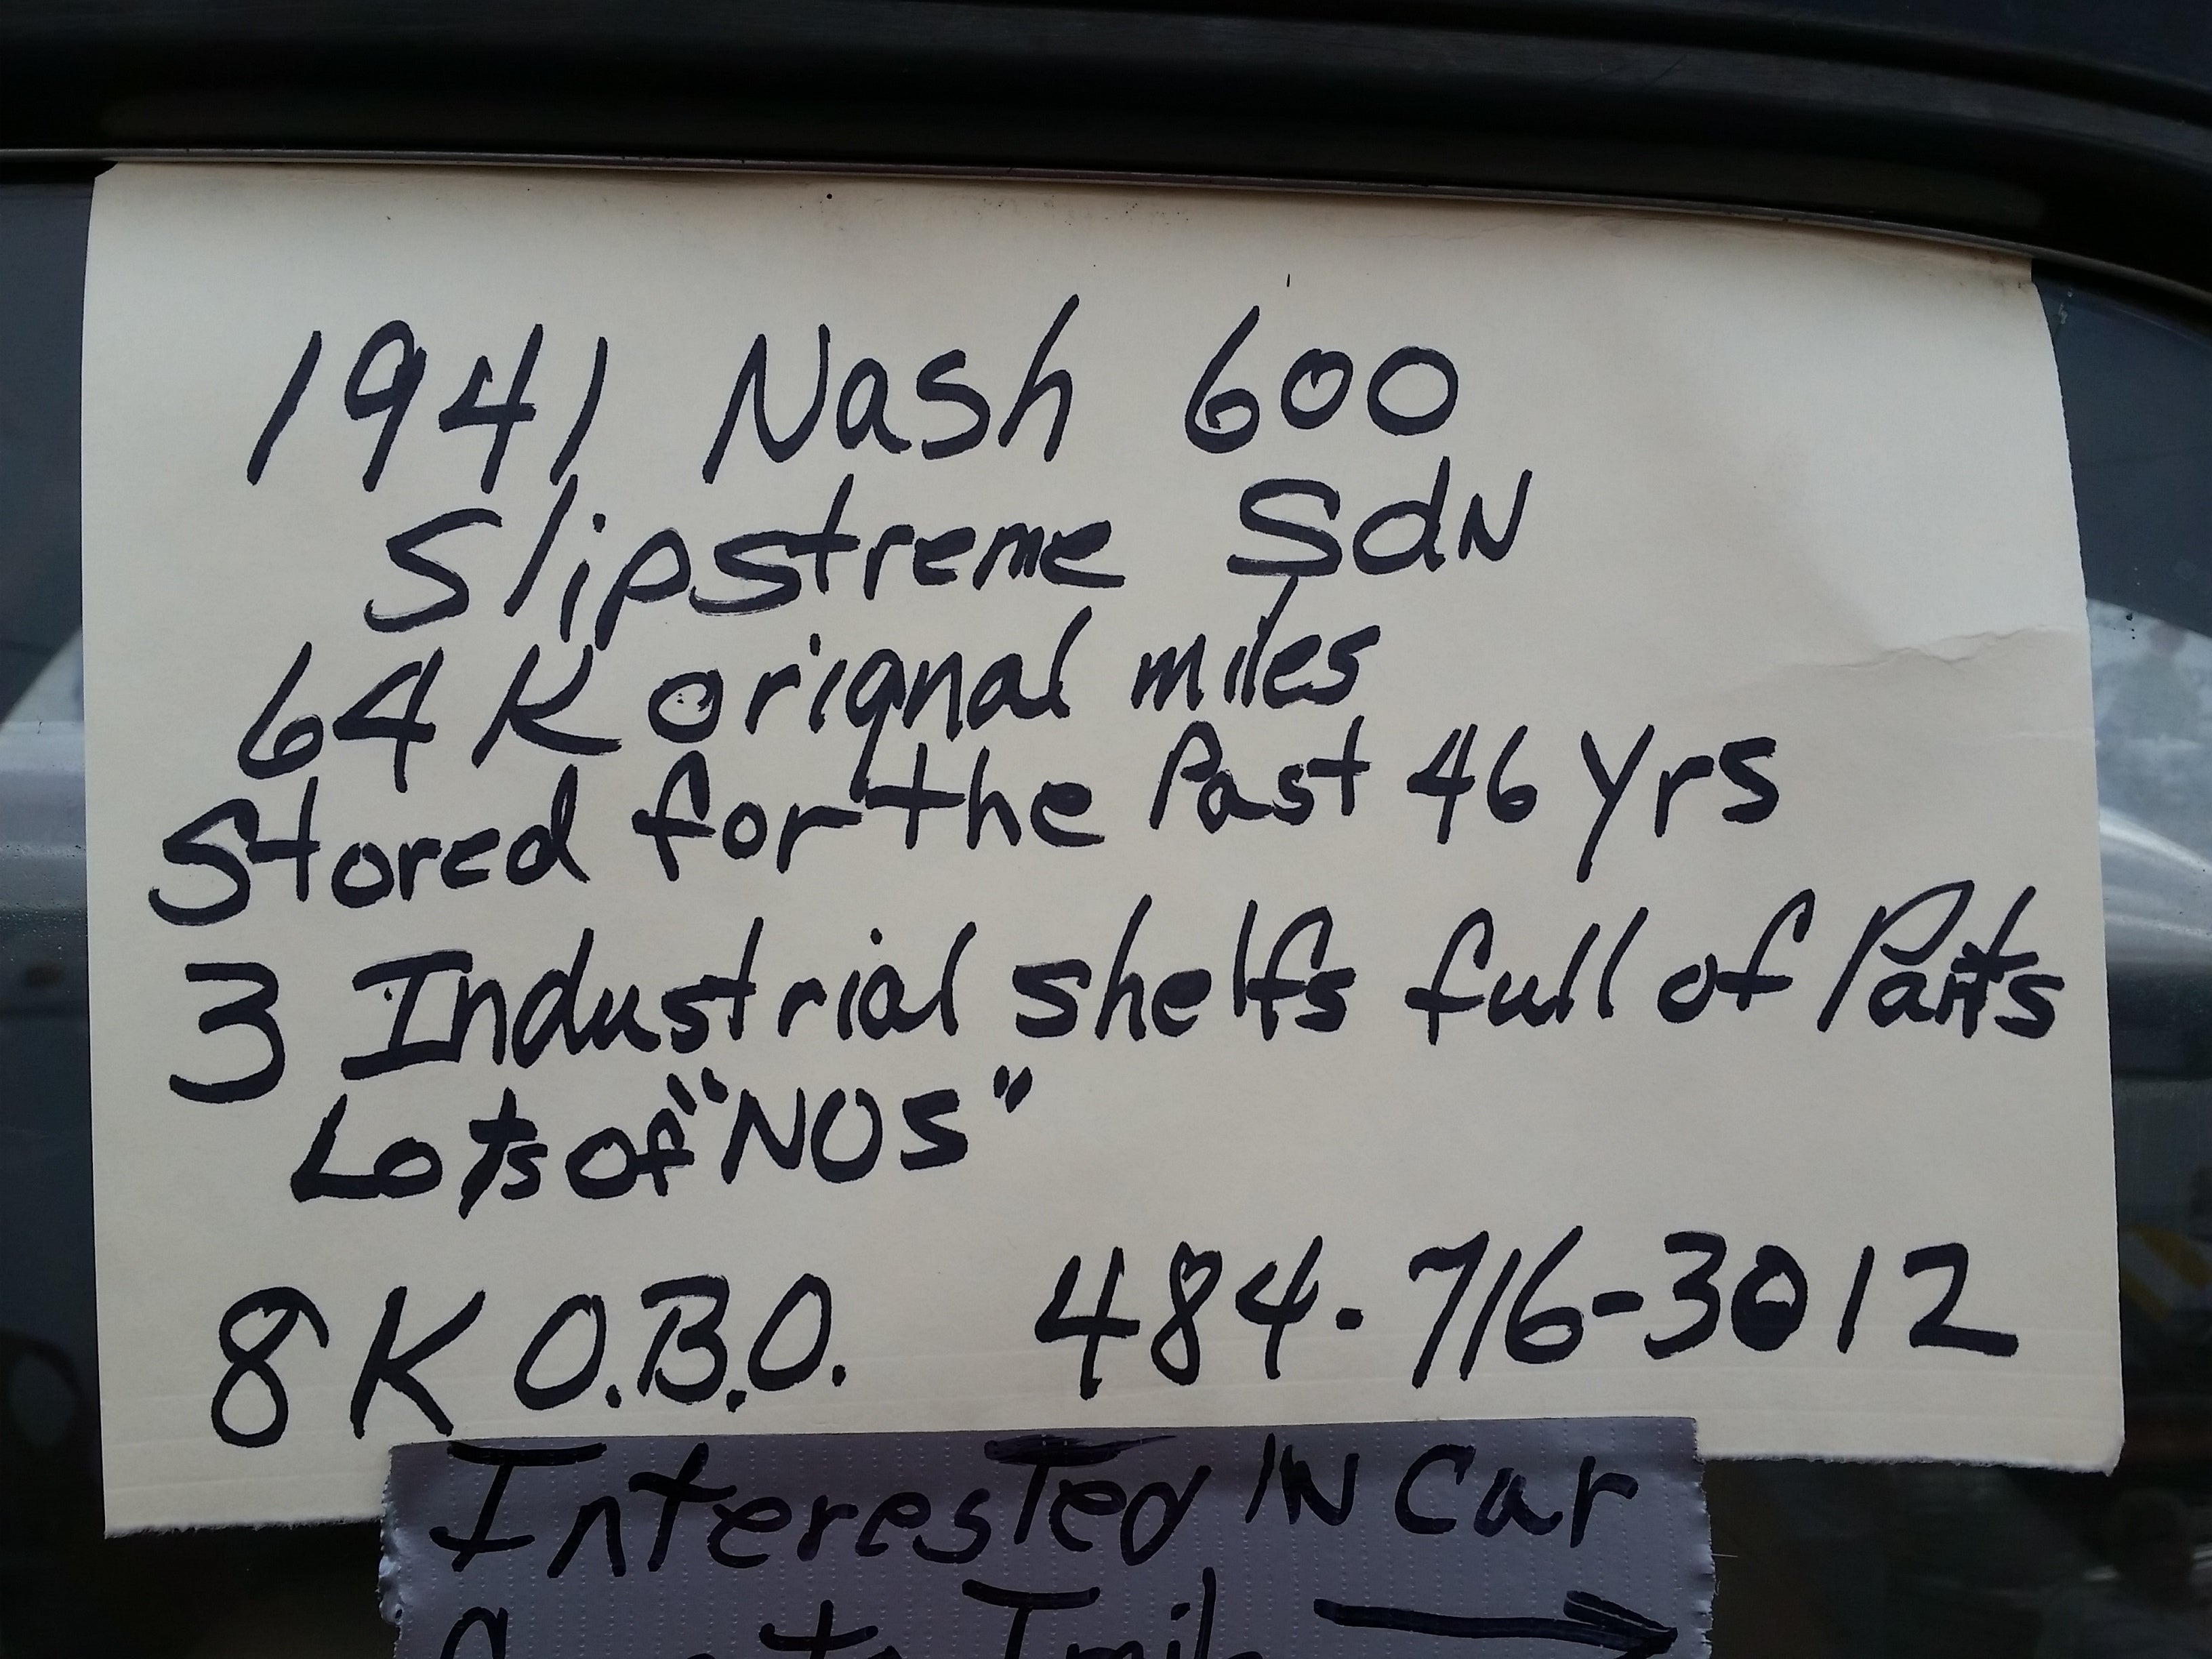 1941 Nash 600
Slipstreme SdN
64K orignal miles
Stored for the Past 46 yrs
3 Industrial shelfs full of Parts
Lots of "NOS"
8K O.B.O. 484-716-3012
Interested IN Car
to